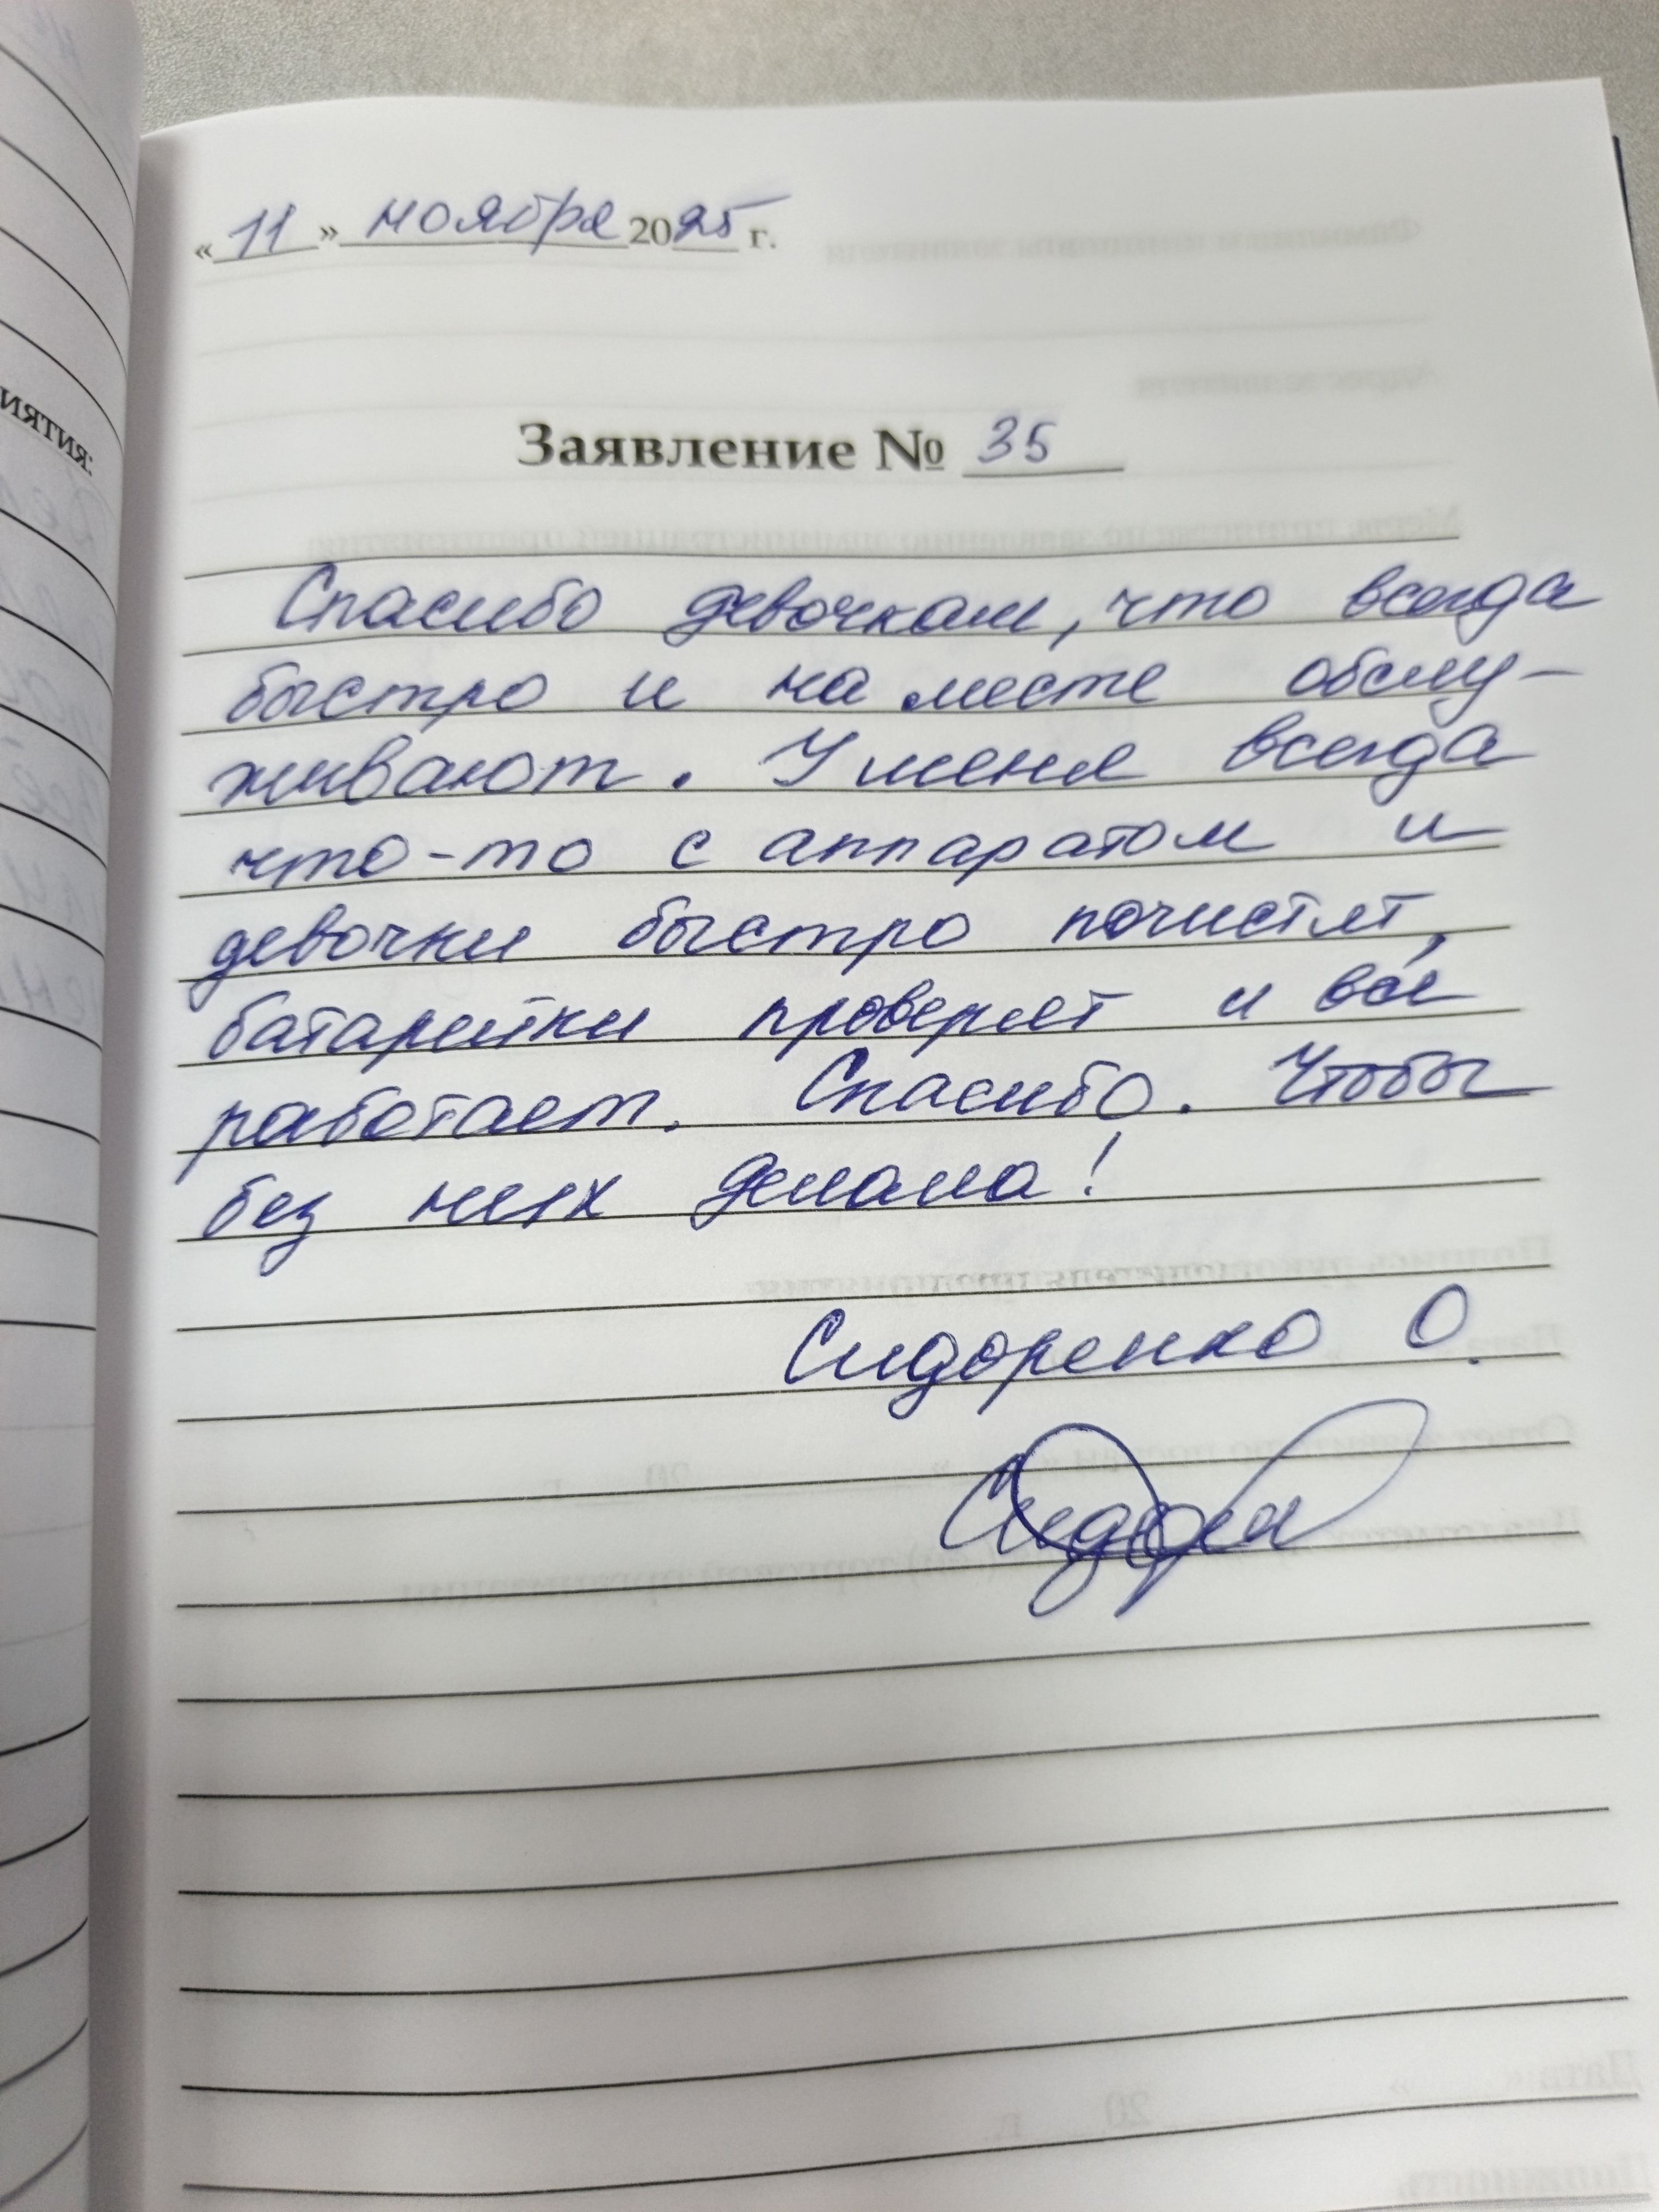 «11» ноября 2025 г.
Заявление № 35
Спасибо девочкам, что всегда
быстро и на месте обслу-
живают. У меня всегда
что-то с аппаратом и
девочки быстро почистят,
батарейки проверят и всё
работает. Спасибо. Чтобы
без них делала!
Сидоренко О.